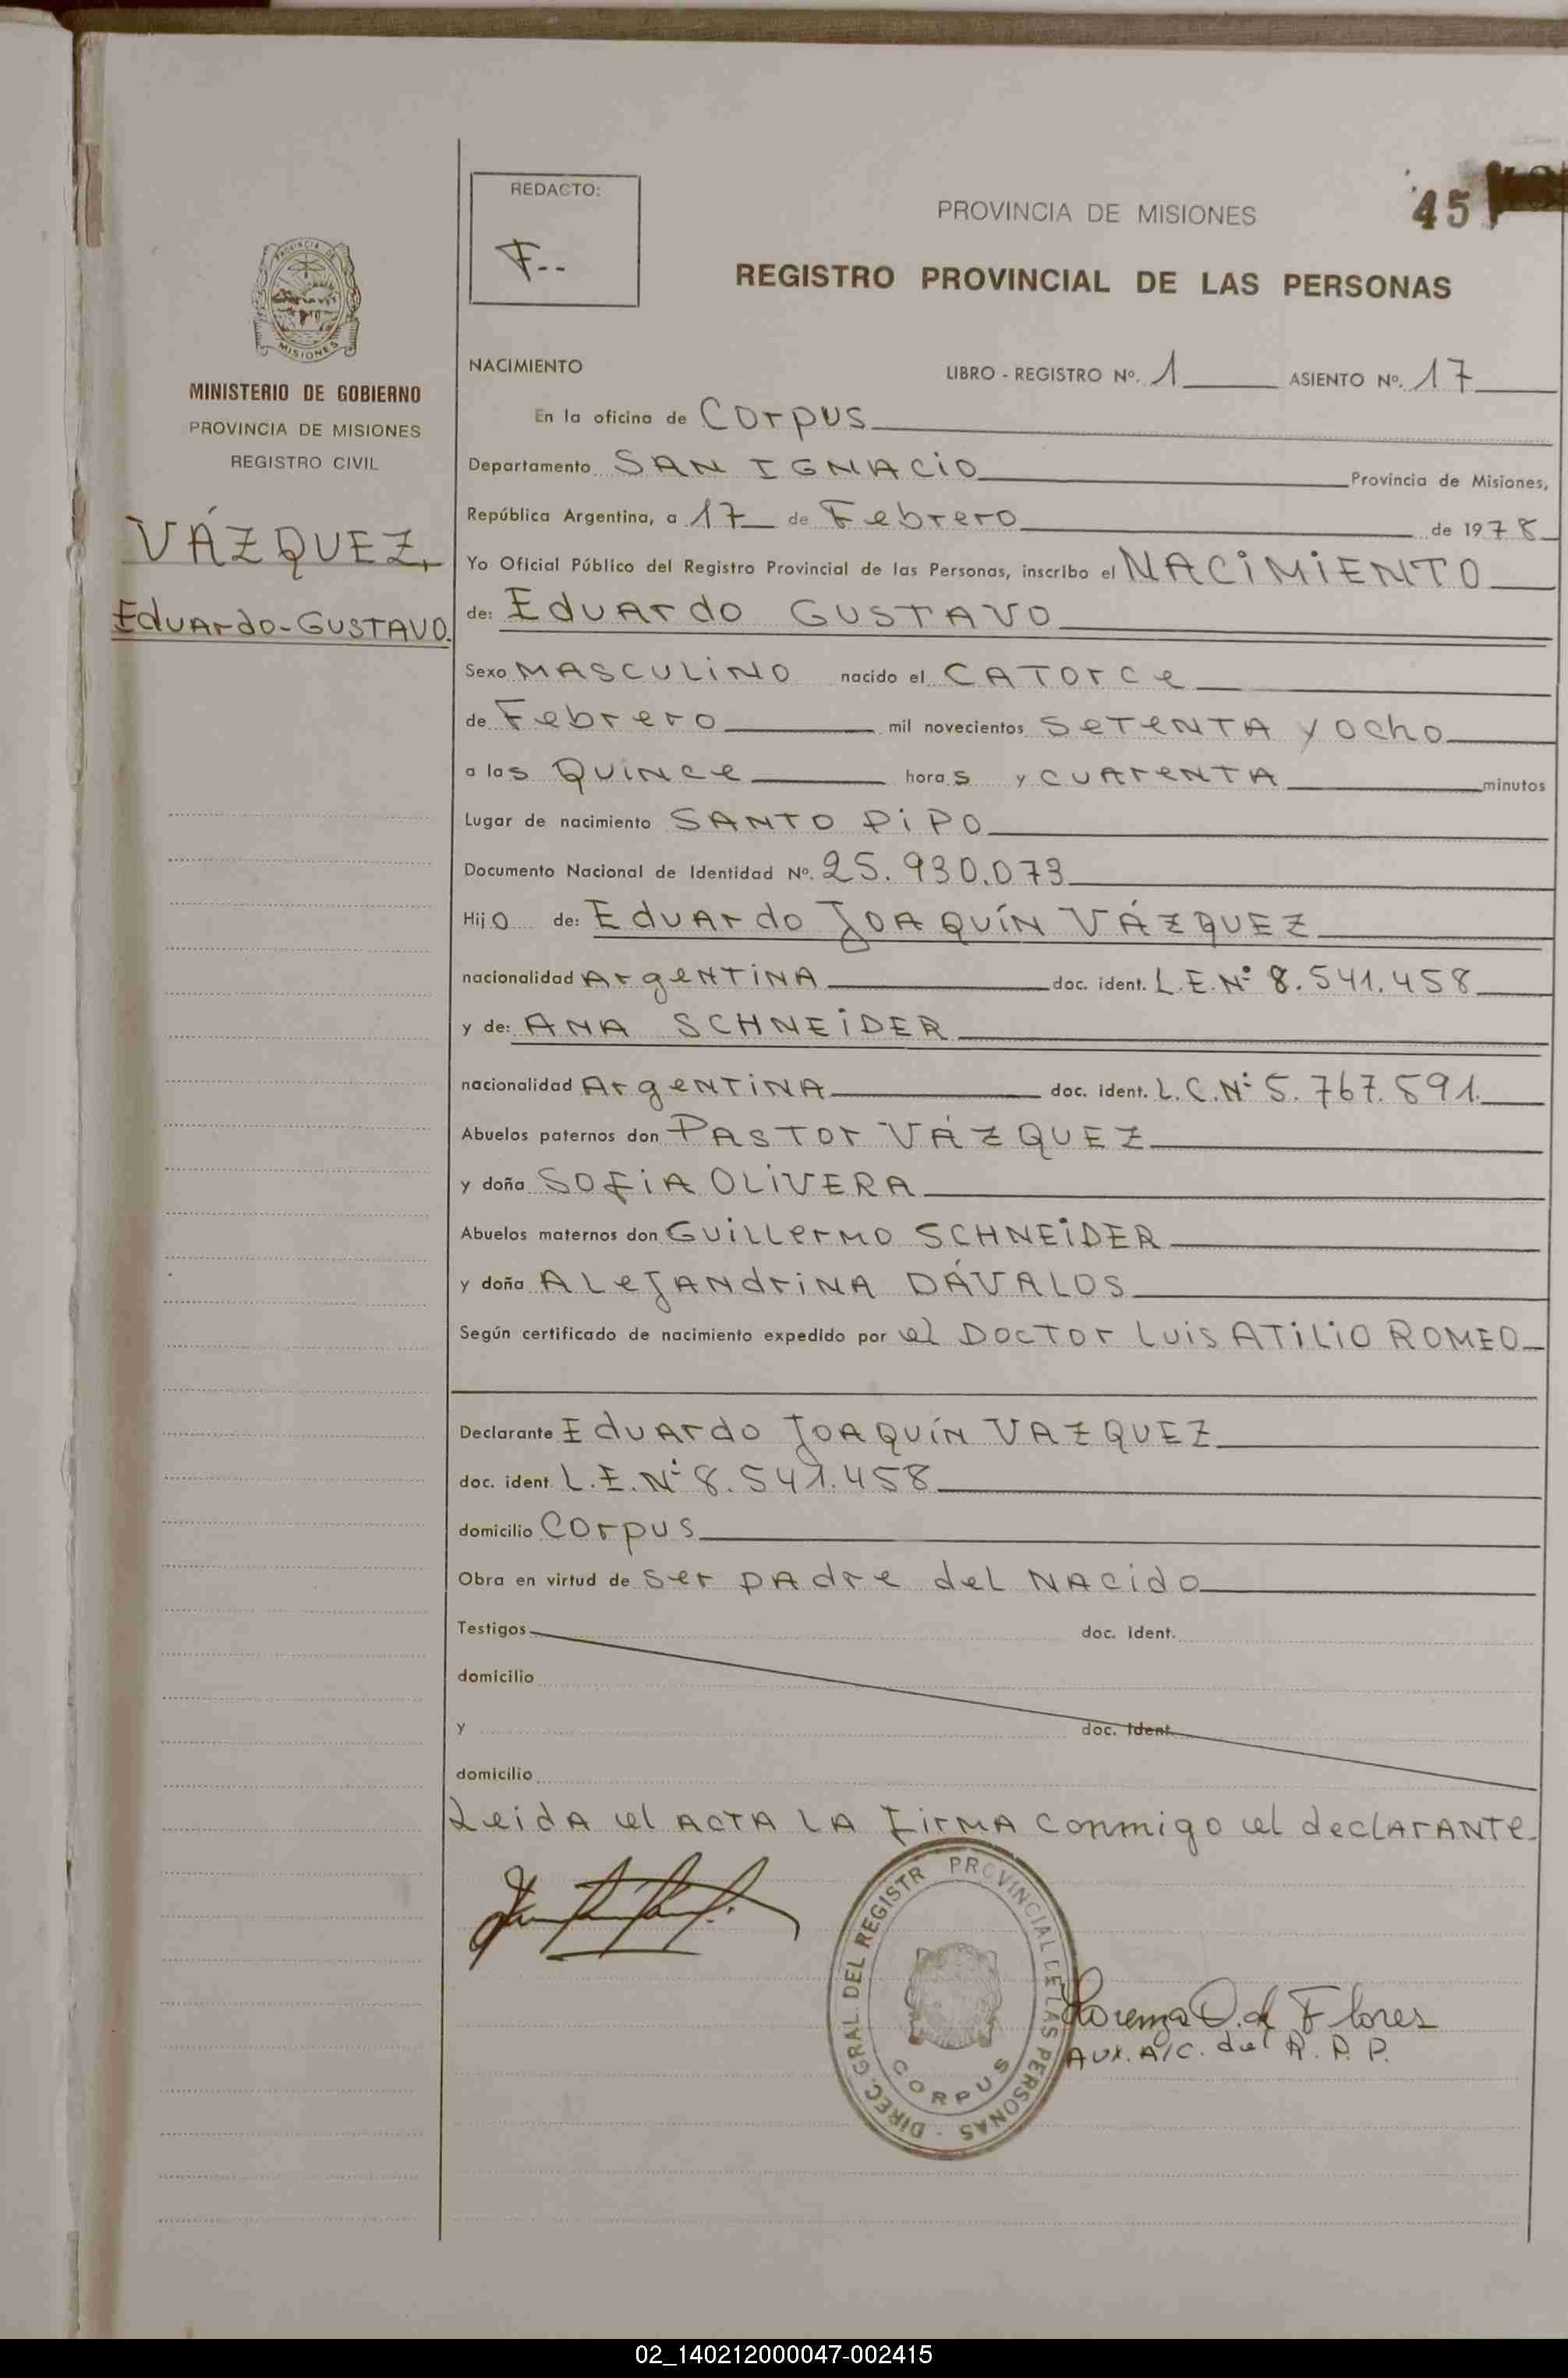 REDACTO:
F--
PROVINCIA DE MISIONES
45
REGISTRO PROVINCIAL DE LAS PERSONAS
PROVINCIA DE
MISIONES
MINISTERIO DE GOBIERNO
PROVINCIA DE MISIONES
REGISTRO CIVIL
VÁZQUEZ,
Eduardo-GUSTAVO.
NACIMIENTO LIBRO - REGISTRO Nº. 1 ASIENTO Nº. 17
En la oficina de Corpus
Departamento SAN IGNACiO Provincia de Misiones,
República Argentina, a 17 de Febrero de 1978
Yo Oficial Público del Registro Provincial de las Personas, inscribo el NACiMiENTO
de: Eduardo GUSTAVO
Sexo MASCULiNO nacido el CATORCe
de Febrero mil novecientos SeTeNTA y ocho
a las QUiNCe horas y CUAreNTA minutos
Lugar de nacimiento SANTO PiPO
Documento Nacional de Identidad Nº. 25.930.073
Hijo de: Eduardo JOAQUÍN VÁZQUEZ
nacionalidad ArgeNTiNA doc. ident. L.E.Nº 8.541.458
y de: ANA SCHNEiDER
nacionalidad ArgeNTiNA doc. ident. L.C.Nº 5.767.591.
Abuelos paternos don PASTOr VÁZQUEZ
y doña SOFiA OLiVERA
Abuelos maternos don GuiLLerMO SCHNEiDER
y doña ALeJANdriNA DÁVALOS
Según certificado de nacimiento expedido por el DOCTOr LUiS ATiLiO ROMEO
Declarante Eduardo JOAQUÍN VAZQUEZ
doc. ident. L.E.Nº 8.541.458
domicilio Corpus
Obra en virtud de ser pAdre deL NAcido
Testigos doc. ident.
domicilio
y doc. ident.
domicilio
Leida el ACTA LA FirMA conmigo el decLArANTe.
DIREC. GRAL. DEL REGISTR PROVINCIAL DE LAS PERSONAS -
CORPUS
Lorenza O. de Flores
Aux. A/C. del R.P.P.
02_140212000047-002415